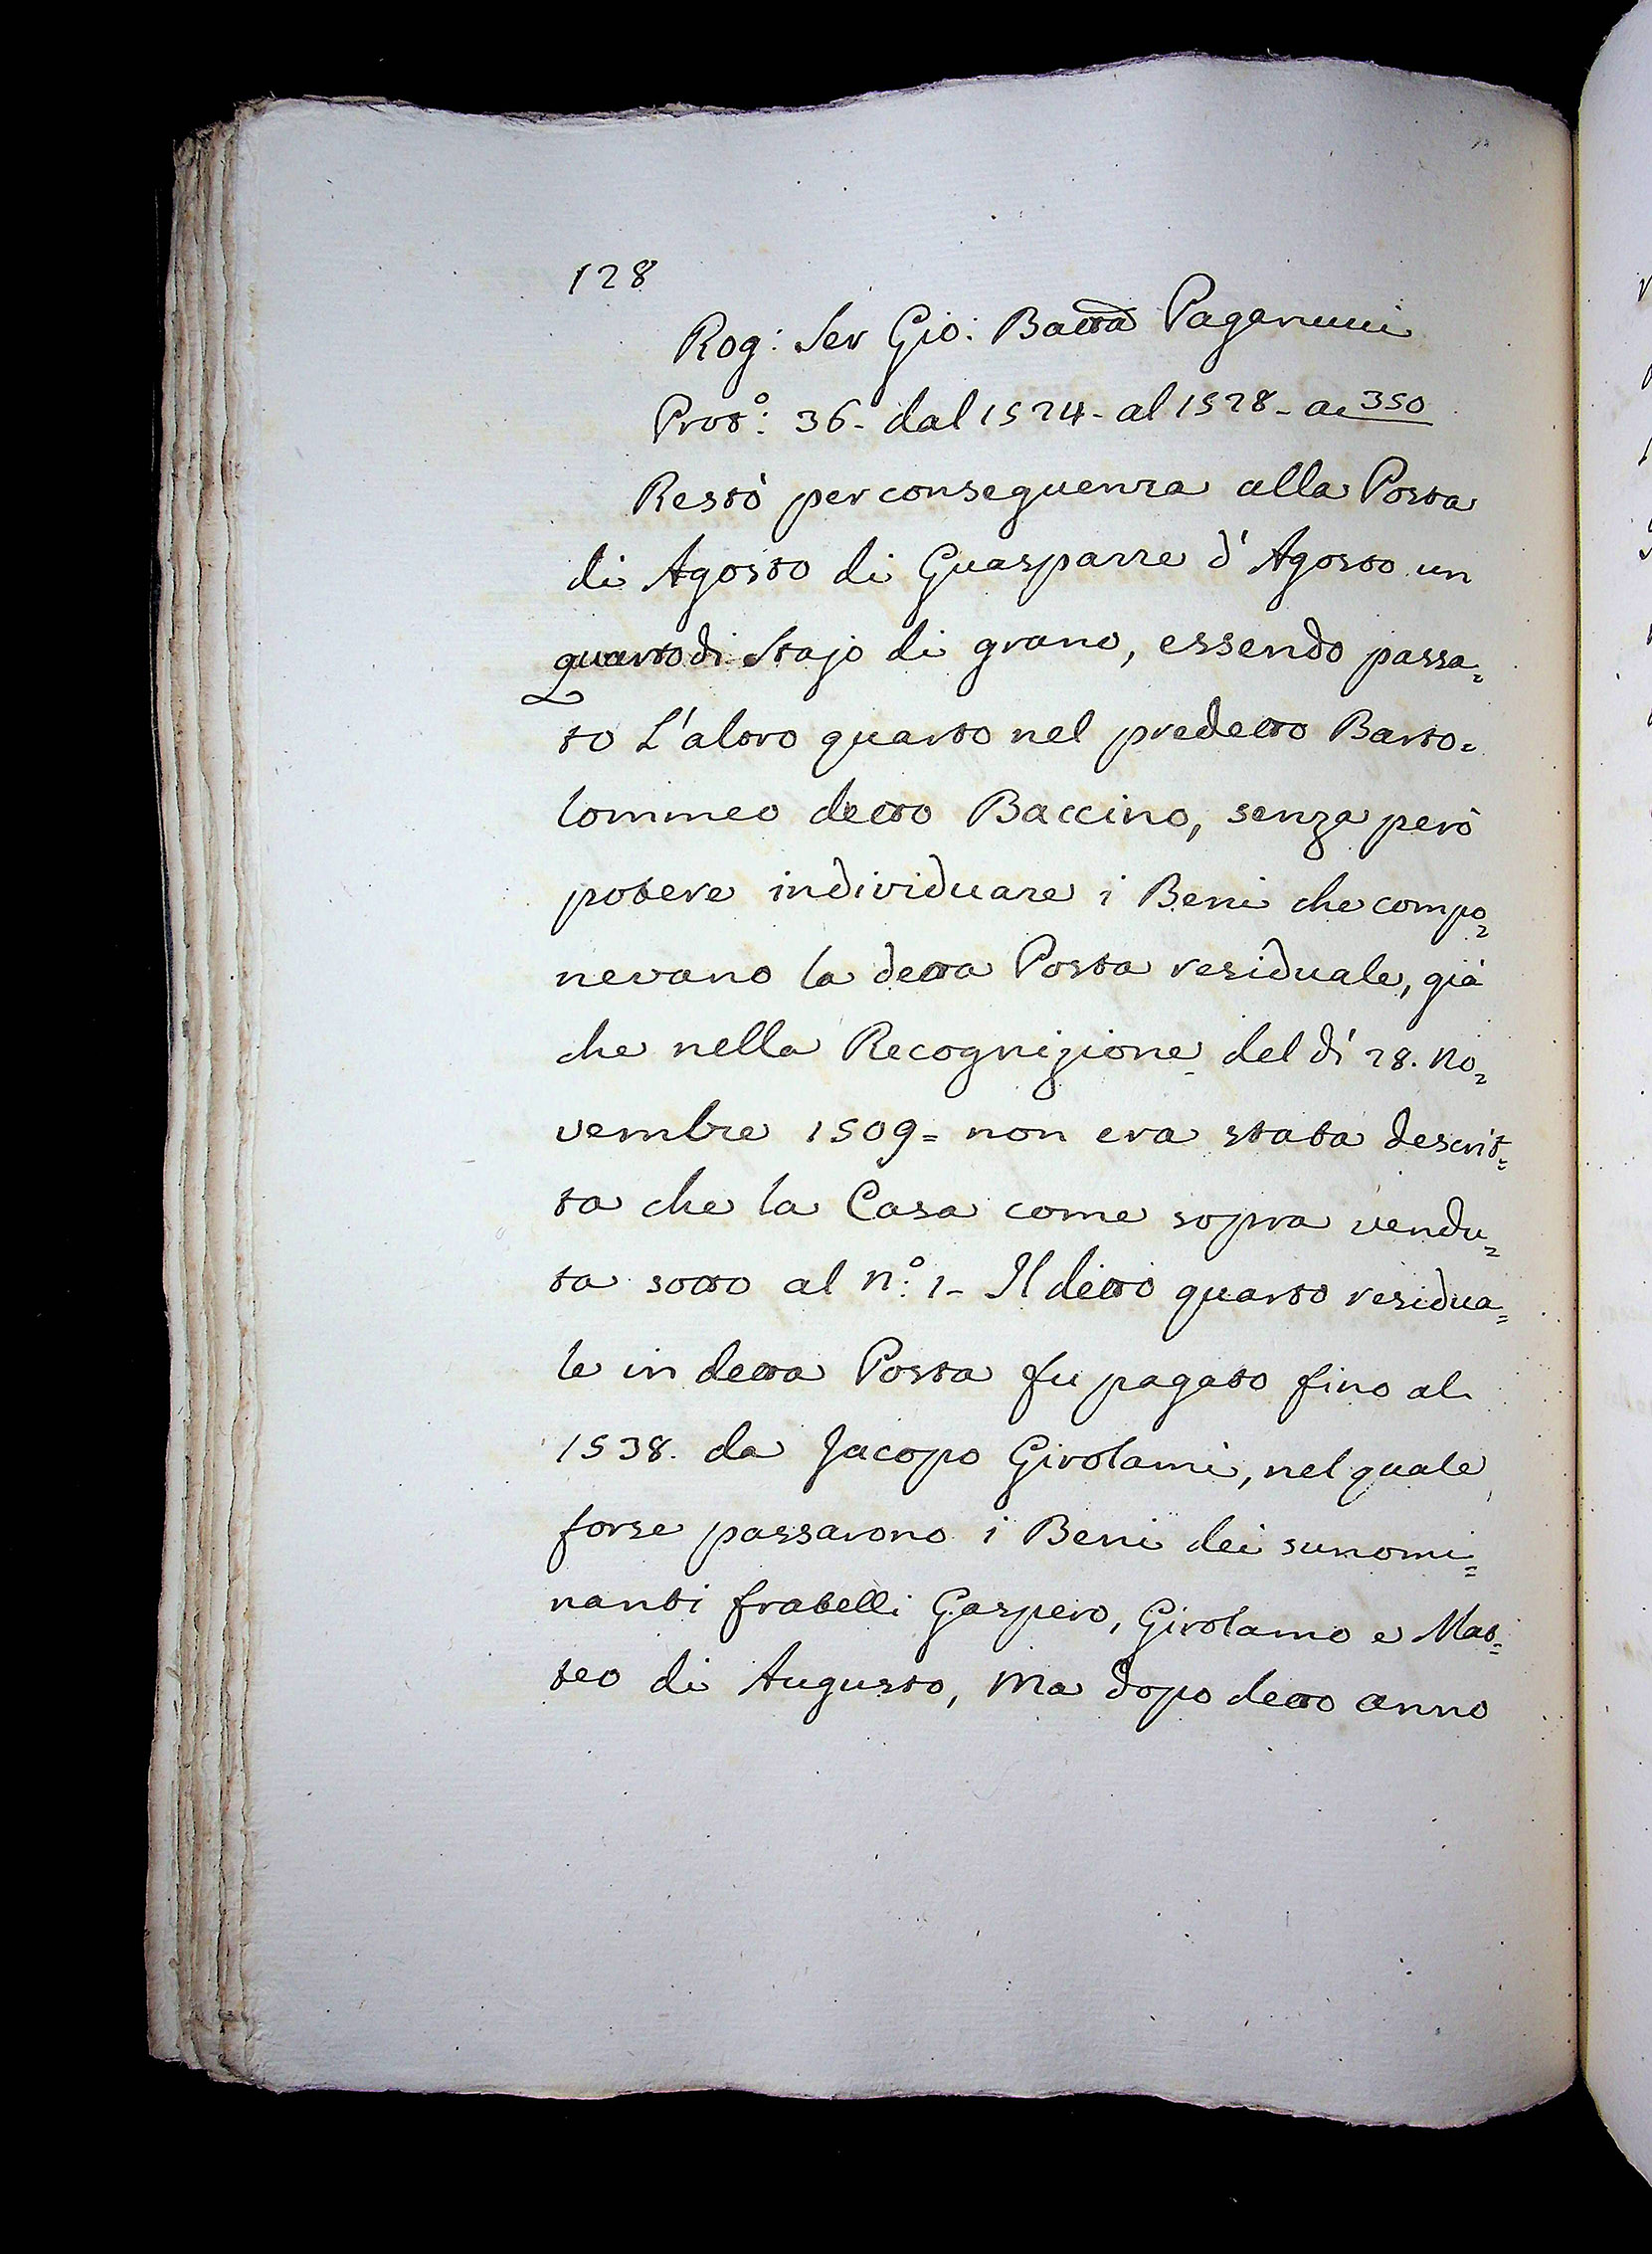 128
Rog: Ser Gio: Batta Paganucci
Prot.º: 36- dal 1524- al 1528- a 350
Restò per conseguenza alla Posta
di Agosto di Guasparre d'Agosto un
quarto di Stajo di grano, essendo passa=
to L'altro quarto nel predetto Barto=
lommeo detto Baccino, senza però
potere individuare i Beni che compo=
nevano la detta Posta residuale, già
che nella Recognizione del dì 28. No=
vembre 1509= non era stata descrit=
ta che la Casa come sopra vendu=
ta sotto al n.º 1- Il detto quarto residua=
le in detta Posta fu pagato fino al
1538. da Jacopo Girolami, nel quale
forse passarono i Beni dei sunomi=
nanti fratelli Gaspero, Girolamo e Mat=
teo di Augusto, Ma dopo detto anno